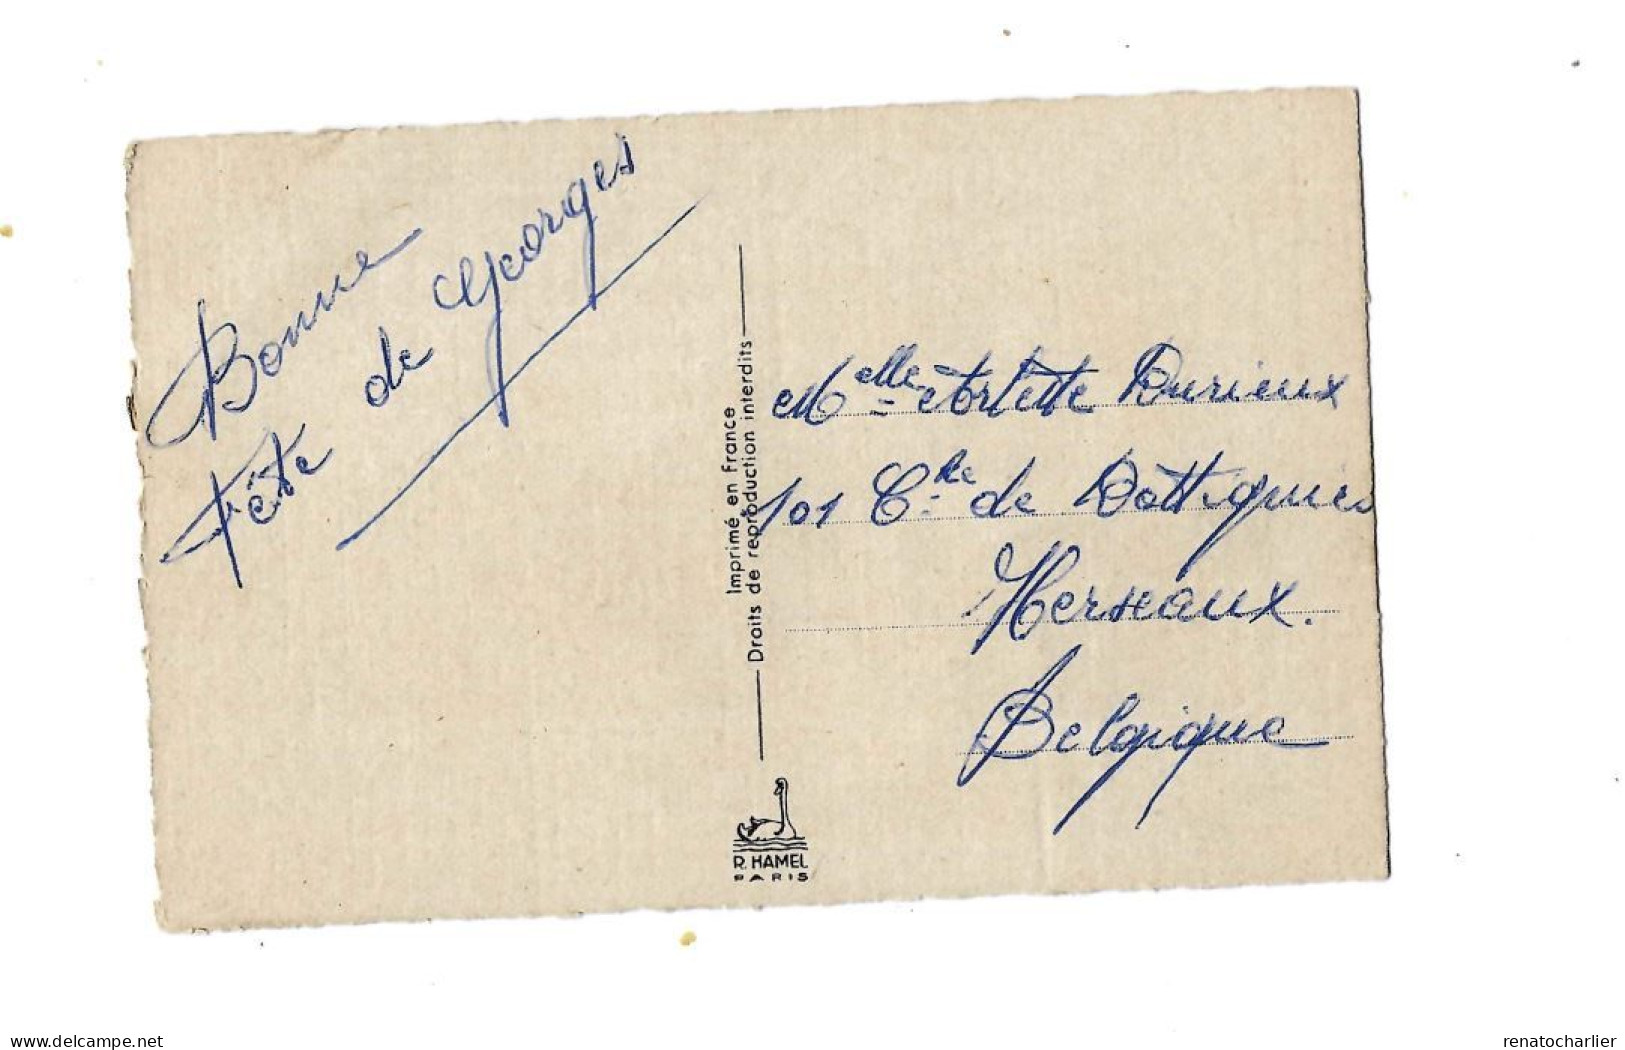 Bonne
Fête
de Georges
Imprimé en France
Droits de reproduction interdits
R. HAMEL
PARIS
Melle Arlette Durieux
101 Cre de Dottignies
Herseaux.
Belgique
www.delcampe.net
renatocharlier